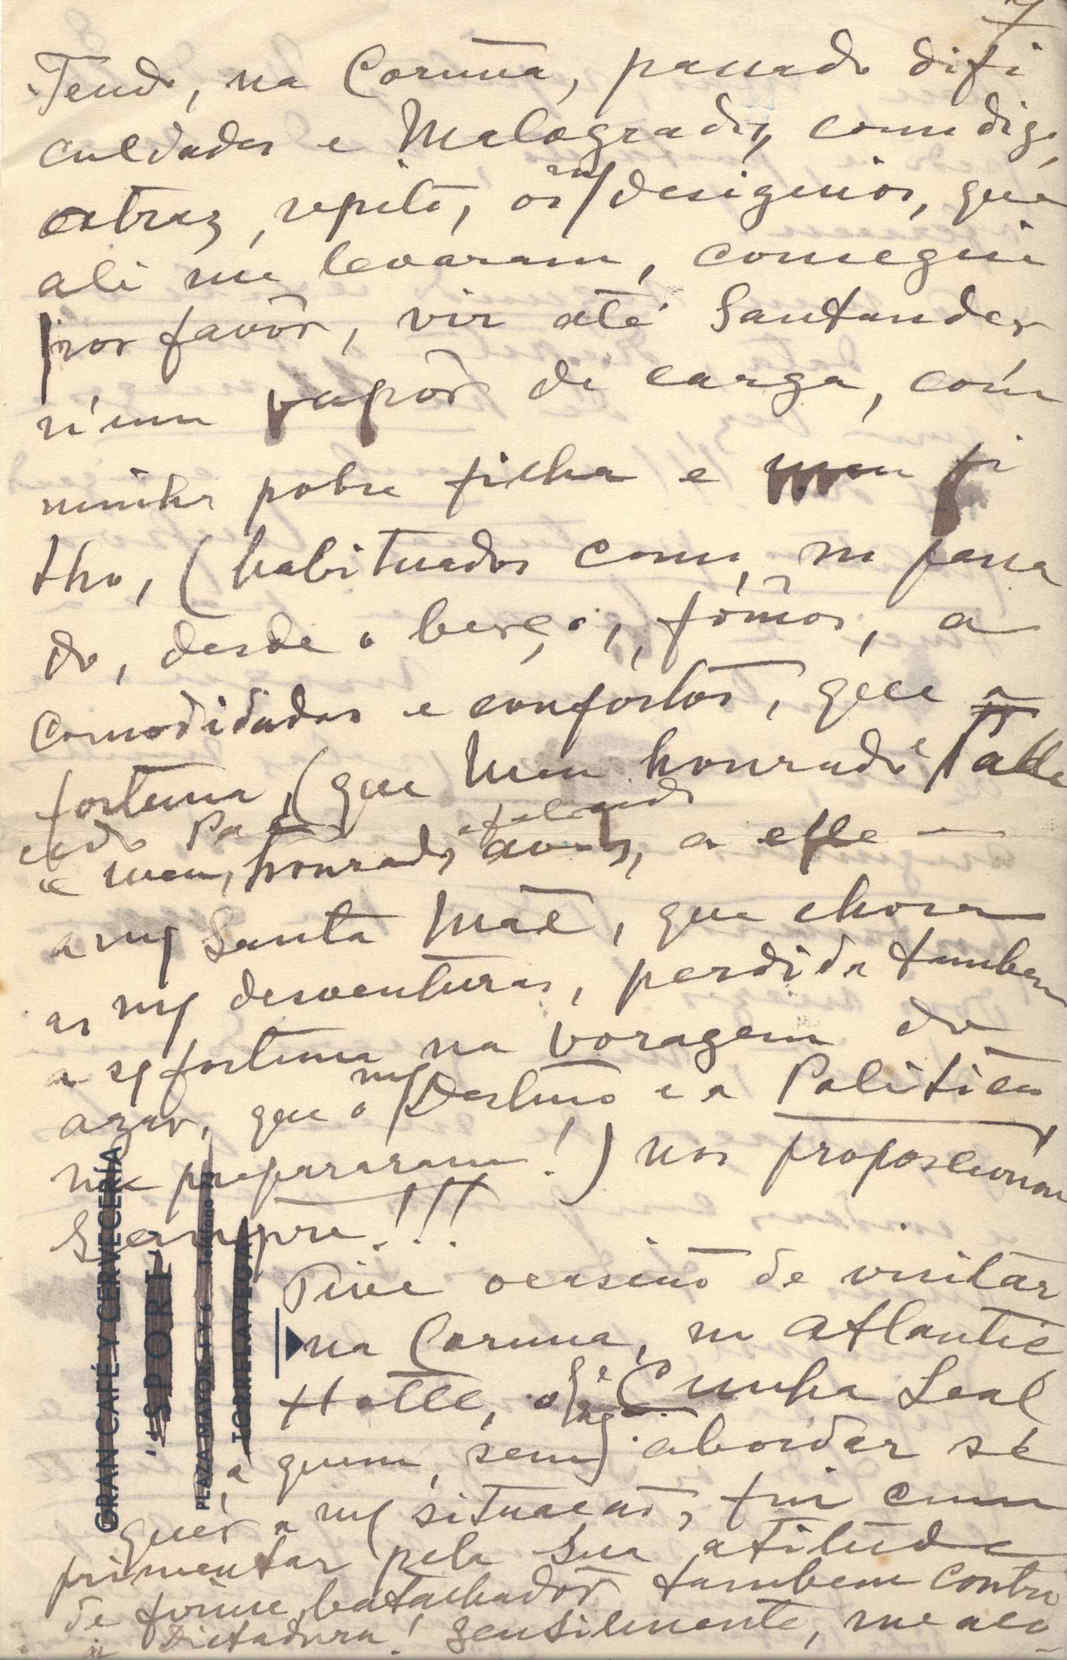 7
Tendo, na Coruña, passado difi
culdades e Malogrados, como digo
atraz, repito, os ms/ designios, que
ali me levaram, consegui
por favôr, vir até Santander
n'um vapôr de carga, com
minha pobre filha e meu fi
lho, (habituados como, no passa
do, desde o berço, fômos, a
comodidades e confortos, que a
fortuna, (que Meu honrado
Pae
e meu, honrado, avós, a elle —
falecido
a mª Santa Mãe, que chora
as mªs desventuras, perdida tambem
a sª fortuna na voragem do
azar, que o mau Destino e a Politica
nos prepararam!) nos proporcionou
sempre!!!
Tive ocasião de visitar
na Coruna, no Atlantic
Hotel, o Sr. Engº Cunha Leal
a quem, sem abordar sé
quér a mª situação, fui cum
primentar pela sua atitude
de firme batalhadôr tambem contra
a Dictadura! Gentilmente, me aco
GRAN CAFÉ Y CERVECERÍA
"SPORT"
PLAZA MAYOR, 5 Y 6
TORRELAVEGA